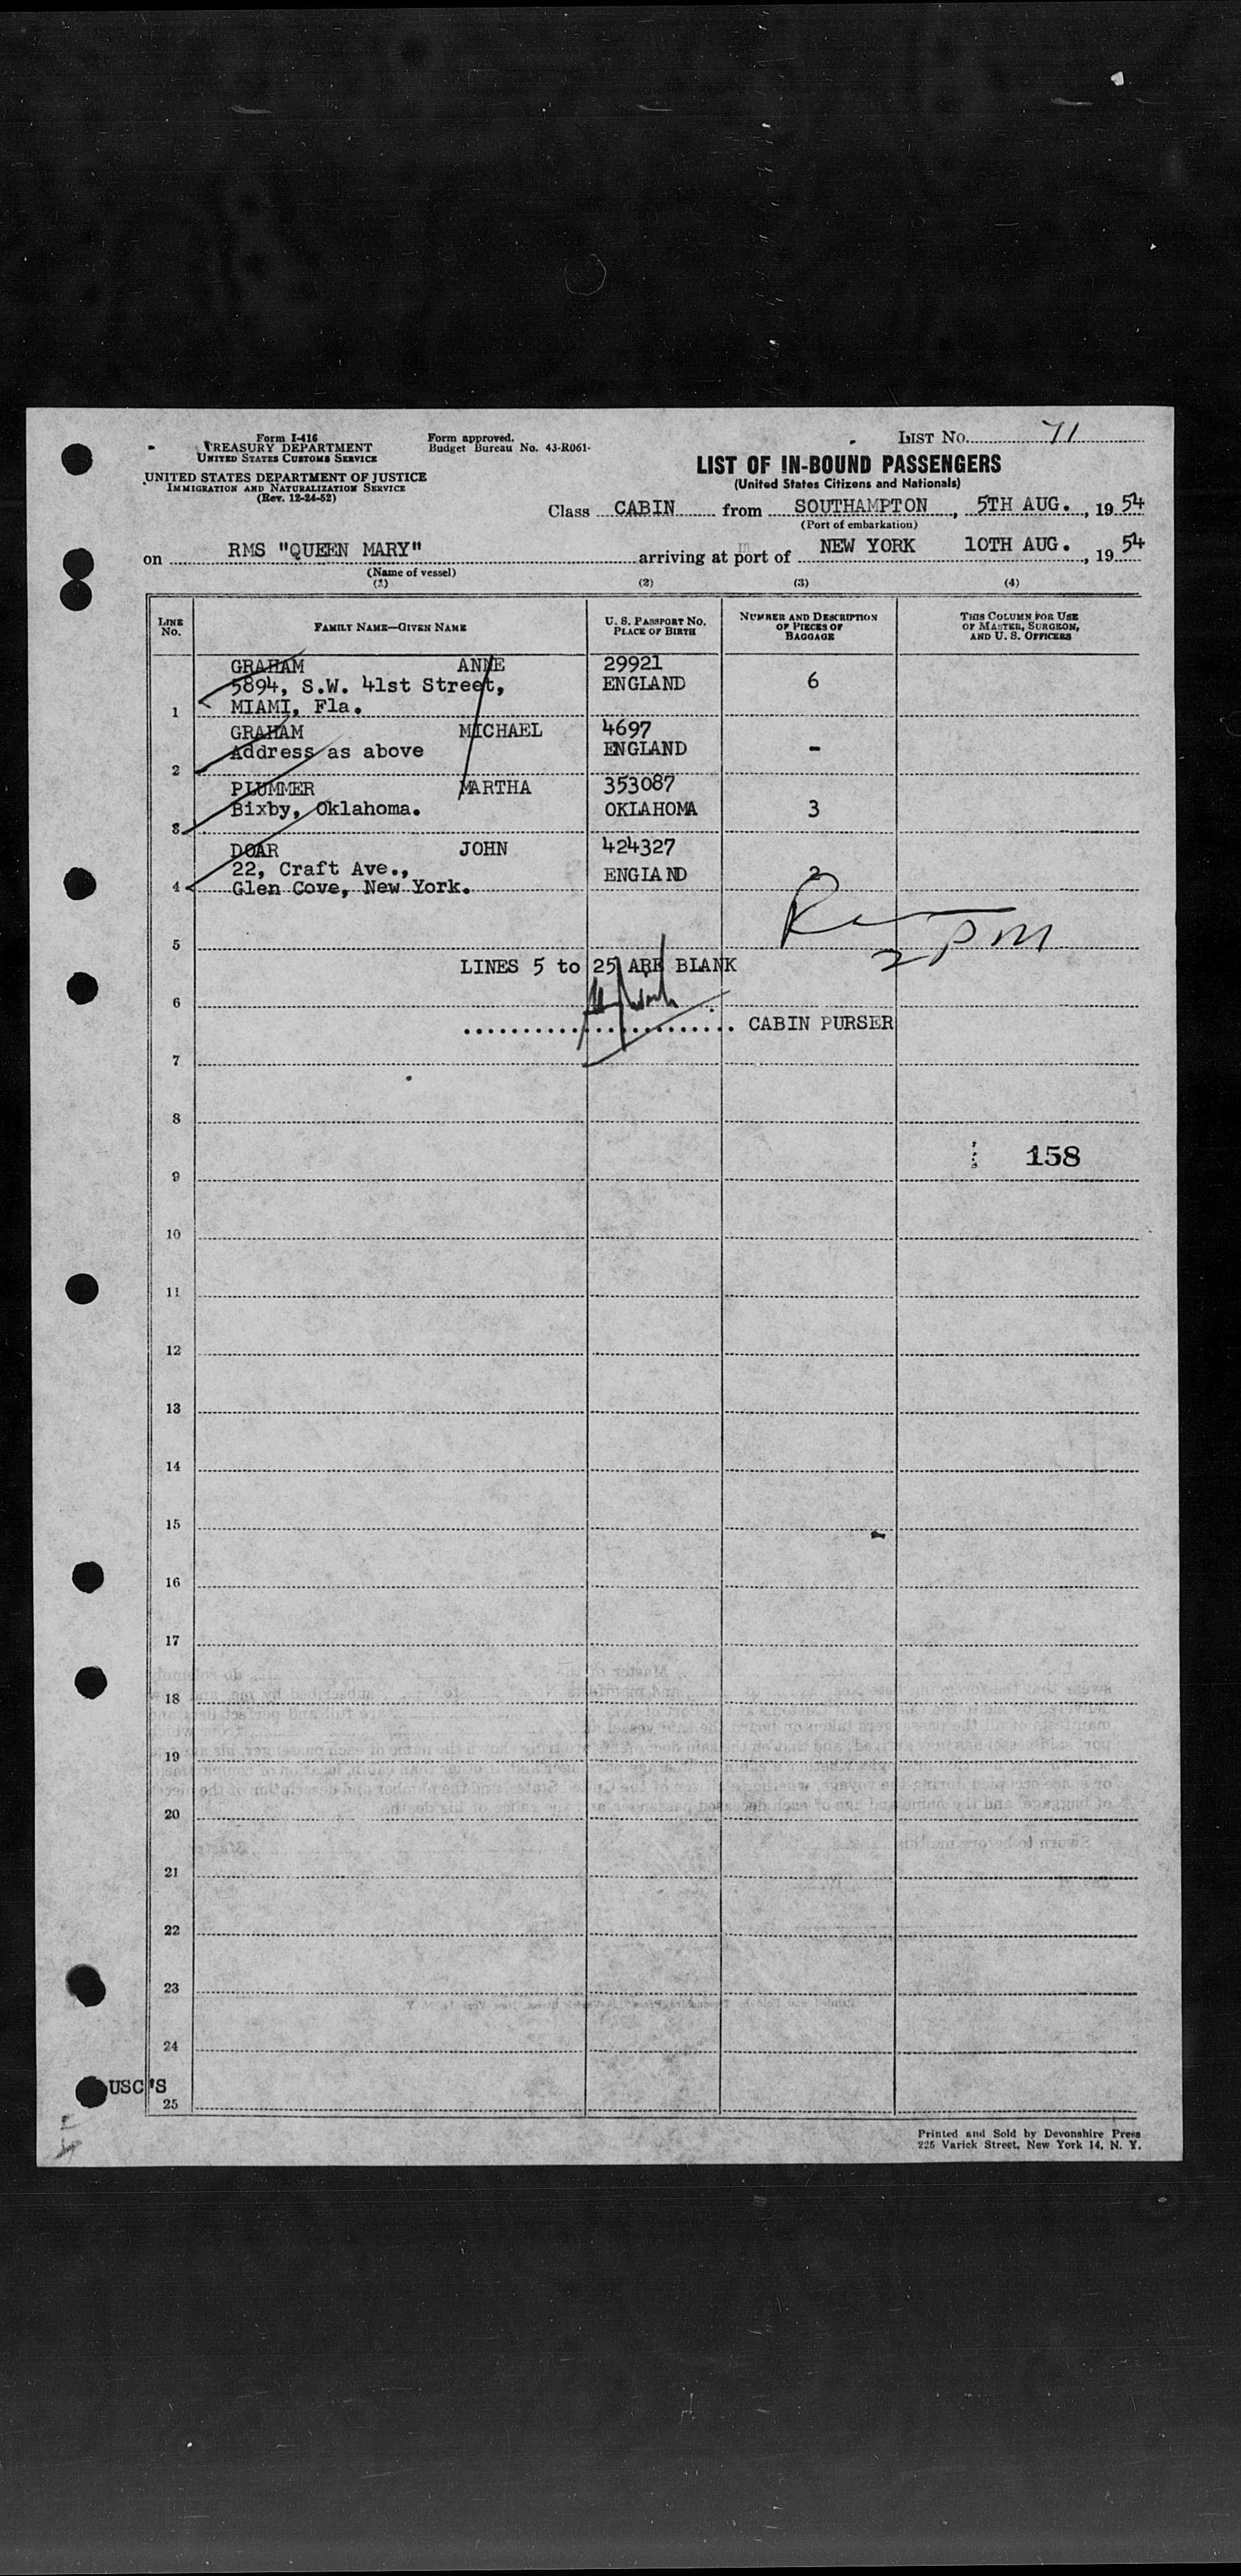 Form I-416
TREASURY DEPARTMENT
UNITED STATES CUSTOMS SERVICE
UNITED STATES DEPARTMENT OF JUSTICE
IMMIGRATION AND NATURALIZATION SERVICE
(Rev. 12-24-52)
Form approved.
Budget Bureau No. 43-R061-
LIST NO. 71
LIST OF IN-BOUND PASSENGERS
(United States Citizens and Nationals)
Class CABIN from SOUTHAMPTON, 5TH AUG., 1954
(Port of embarkation)
on RMS "QUEEN MARY" arriving at port of NEW YORK 10TH AUG., 1954
(Name of vessel)
(1) (2) (3) (4)
LINE NO. FAMILY NAME—GIVEN NAME U. S. PASSPORT NO. PLACE OF BIRTH NUMBER AND DESCRIPTION OF PIECES OF BAGGAGE THIS COLUMN FOR USE OF MASTER, SURGEON, AND U. S. OFFICERS
GRAHAM ANNE 29921
5894, S.W. 41st Street, ENGLAND 6
1 MIAMI, Fla.
GRAHAM MICHAEL 4697
Address as above ENGLAND -
2
PLUMMER MARTHA 353087
Bixby, Oklahoma. OKLAHOMA 3
3
DOAR JOHN 424327
22, Craft Ave., ENGLAND 2
4 Glen Cove, New York.
2 PM
5
LINES 5 to 25 ARE BLANK
6
CABIN PURSER
7
8
158
9
10
11
12
13
14
15
16
17
18
19
20
21
22
23
24
USC'S
25
Printed and Sold by Devonshire Press
225 Varick Street, New York 14, N. Y.